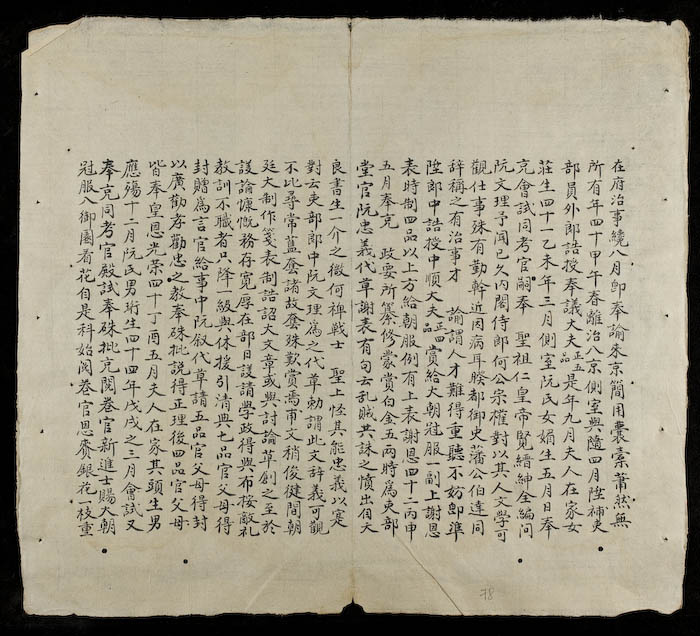 在府治事纔八月卽奉諭來京簡用囊橐蕭然無
所有年四十甲午春離治入京側室與隨四月陞補吏
部員外郎誥授奉議大夫正五品是年九月夫人在家女
莊生四十一乙未年三月側室阮氏女嫡生五月日奉
充會試同考官嗣奉 聖祖仁皇帝覽縉紳全編問
阮文理予聞已久內閣侍郎何公宗權對以其人文學可
觀仕事殊有勤幹近因病耳睽都御史潘公伯達同
辭稱之有治事才 諭謂人才難得重聽不妨卽準
陞郎中誥授中順大夫正四品賞給大朝冠服一副上謝恩
表時制四品以上方給朝服例有上表謝恩四十二丙申
五月奉充 政要所纂修蒙賞白金五兩時爲吏部
堂官阮忠義代草謝表有句云乱賊共誅之憤出自天
良書生一介之微何裨戰士 聖上怪其能忠義以寔
對云吏部郎中阮文理爲之代草勅謂此文辭義可觀
不比尋常藍套諸故套殊歎賞焉甫文稍俊健間朝
廷大制作箋表制誥詔大文章或與討論草創之至於
議論慷慨務存寬厚在部日議請學政得與布按敵礼
教訓不職者只降一級與休援引清典七品官父母得
封贈爲言官給事中阮叙代草請五品官父母得封
以廣勸孝勸忠之教奉硃批說得正理後四品官父母
皆奉皇恩光榮四十丁酉五月夫人在家其頭生男
應殤十二月阮氏男珩生四十四年戊戌之三月會試又
奉充同考官殿試奉硃批充閱卷官新進士賜大朝
冠服入御園看花自是科始閱卷官恩賚銀花一枝重
78